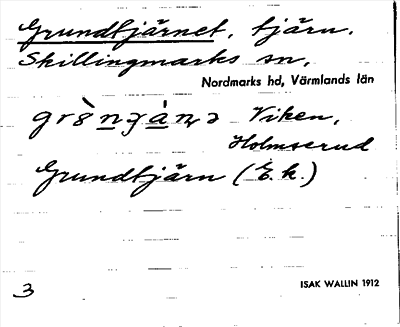 Grundtjärnet, tjärn.
Skillingmarks sn,
Nordmarks hd, Värmlands län
Viken,
Holmserud
Grundtjärn (E. k.)
3
ISAK WALLIN 1912